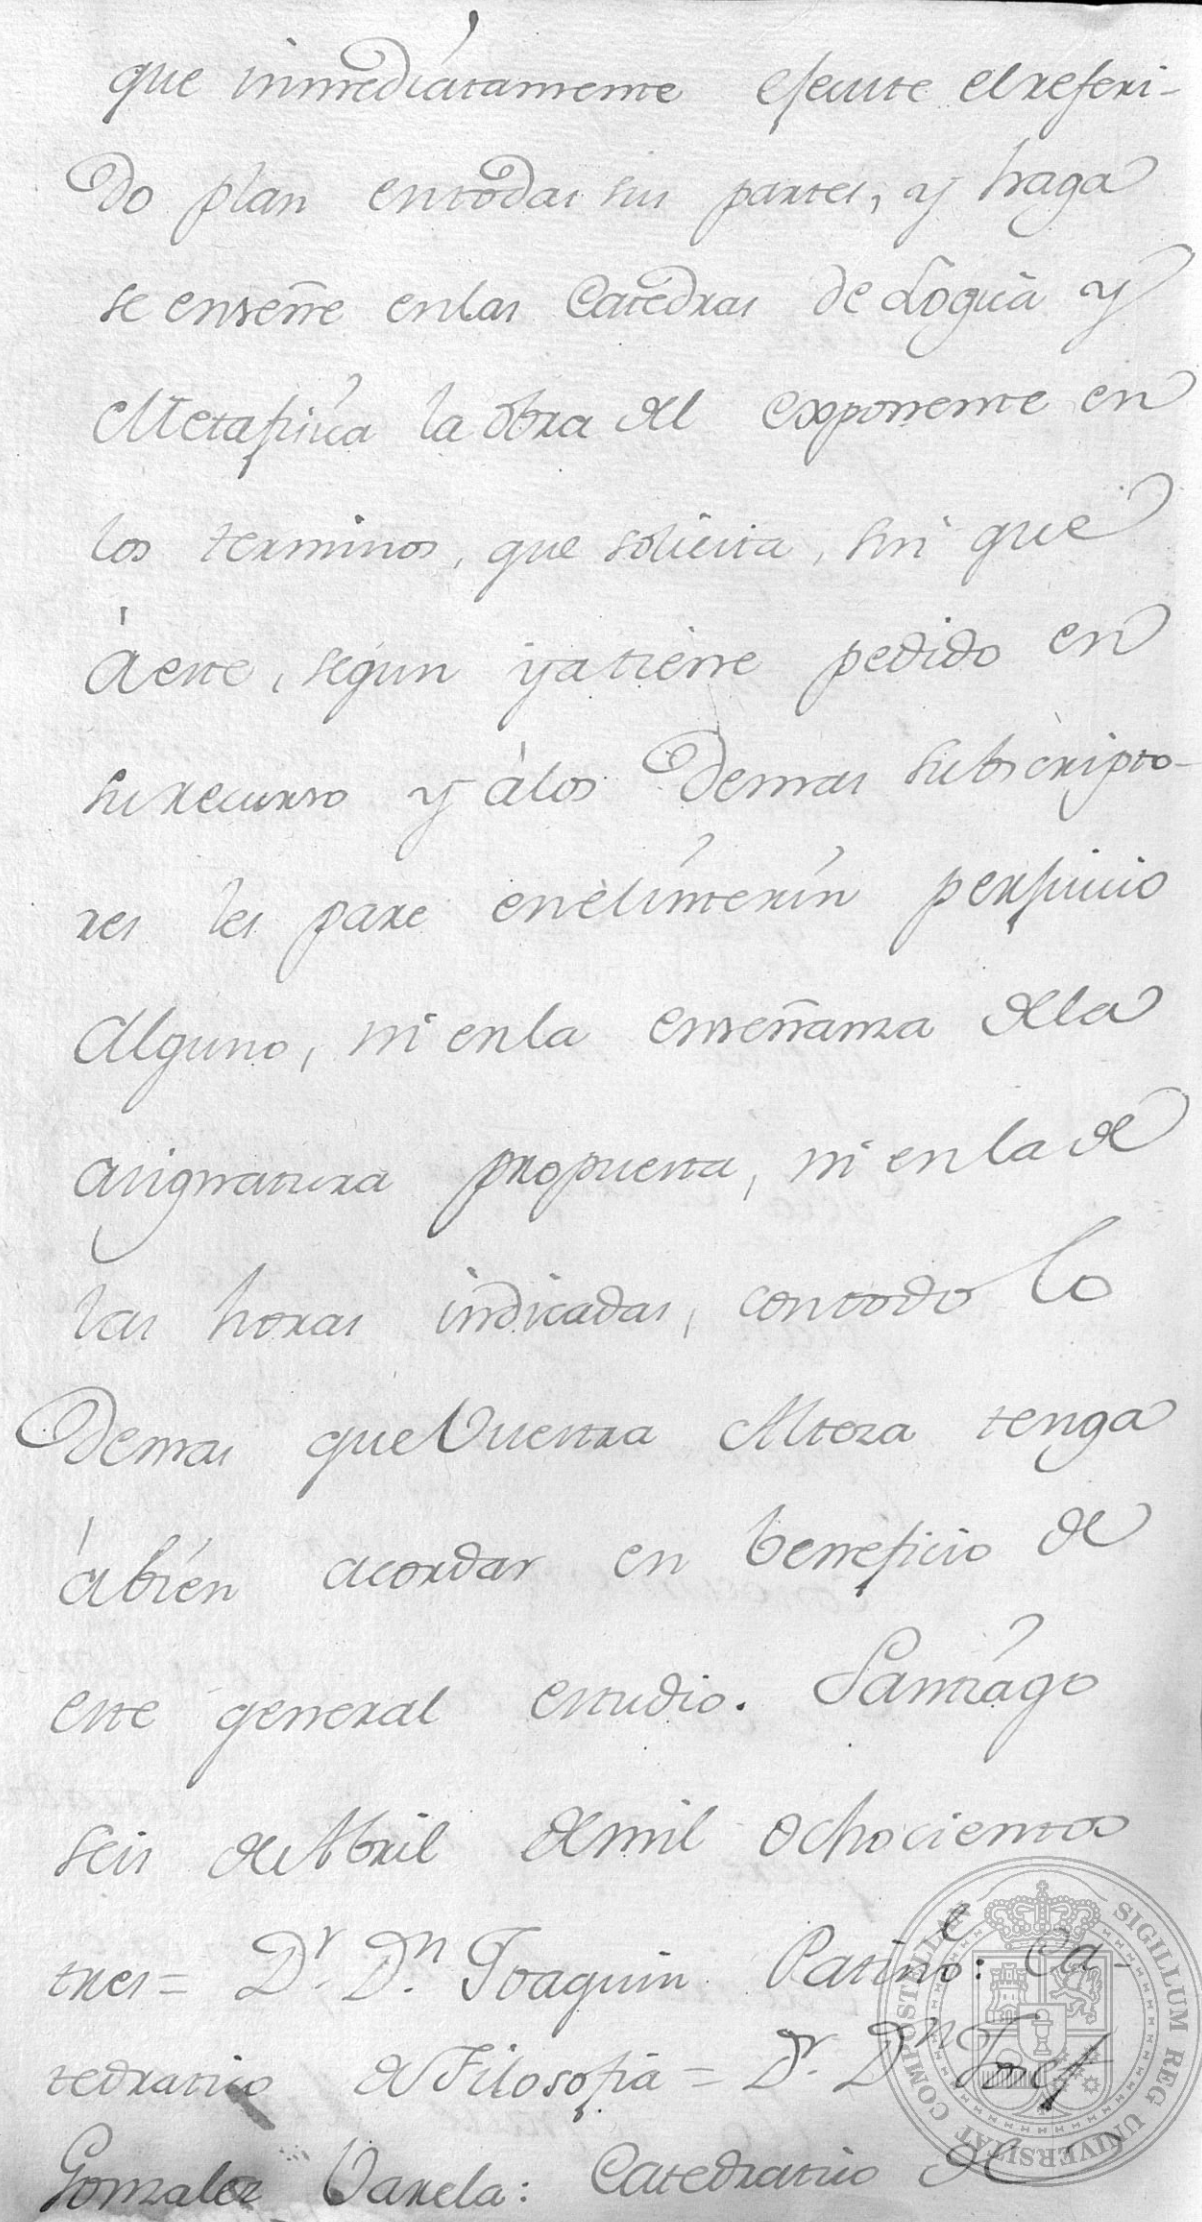 que inmediátamente ejecute el referi-
do plan entodas sus partes, y haga
se enseñe enlas Catedras de Logica y
Metafisica la óbra del exponente en
los terminos, que solicita, sin que
à este, según ya tiene pedido en
su recurso y àlos demas subscripto-
res les pare enelínterín perjuicio
Alguno, ni enla enseñanza dela
asignatura propuesta, ni en la de
las horas indicadas, contodo lo
demas que Vuestra Alteza tenga
àbién acordar en beneficio de
este general estudio. Santiágo
seis de Abril demil ochocientos
tres= Dr. Dn. Joaquin Patiño: Ca-
tedratico de Filosofia = Dr. Dn Josef
Gonzalez Varela: Catedratico de
SIGILLUM REG UNIVERSITAT COMPOSTELLAE